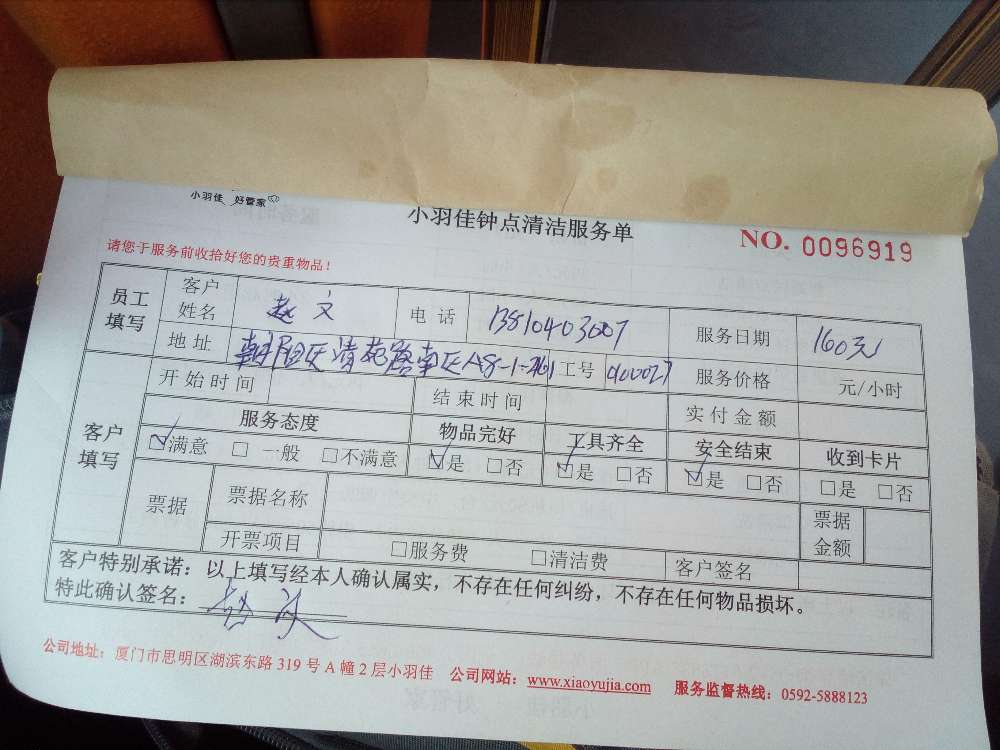 小羽佳 好管家
小羽佳钟点清洁服务单
NO. 0096919
请您于服务前收拾好您的贵重物品！
员工填写 客户姓名 赵文 电话 13810403007 服务日期 160元
地址 朝阳区清苑路南区A8-1-261 工号 0400027 服务价格 元/小时
客户填写 开始时间 结束时间 实付金额
服务态度 物品完好 工具齐全 安全结束 收到卡片
☑满意 □一般 □不满意 ☑是 □否 ☑是 □否 ☑是 □否 □是 □否
票据 票据名称 票据金额
开票项目 □服务费 □清洁费 客户签名
客户特别承诺：以上填写经本人确认属实，不存在任何纠纷，不存在任何物品损坏。
特此确认签名：
公司地址：厦门市思明区湖滨东路 319 号 A 幢 2 层小羽佳 公司网站：www.xiaoyujia.com 服务监督热线：0592-5888123